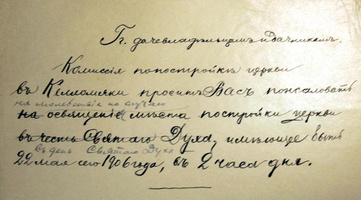 Гг. дачевладѣльцамъ и дачникамъ.
Комиссія по постройкѣ церкви
въ Келломяки проситъ Васъ пожаловать
на молебствіе по случаю
на освященіе мѣста постройки церкви
въ честь Святаго Духа, имѣющее быть
въ день Святаго Духа
22 мая сего 1906 года, въ 2 часа дня.